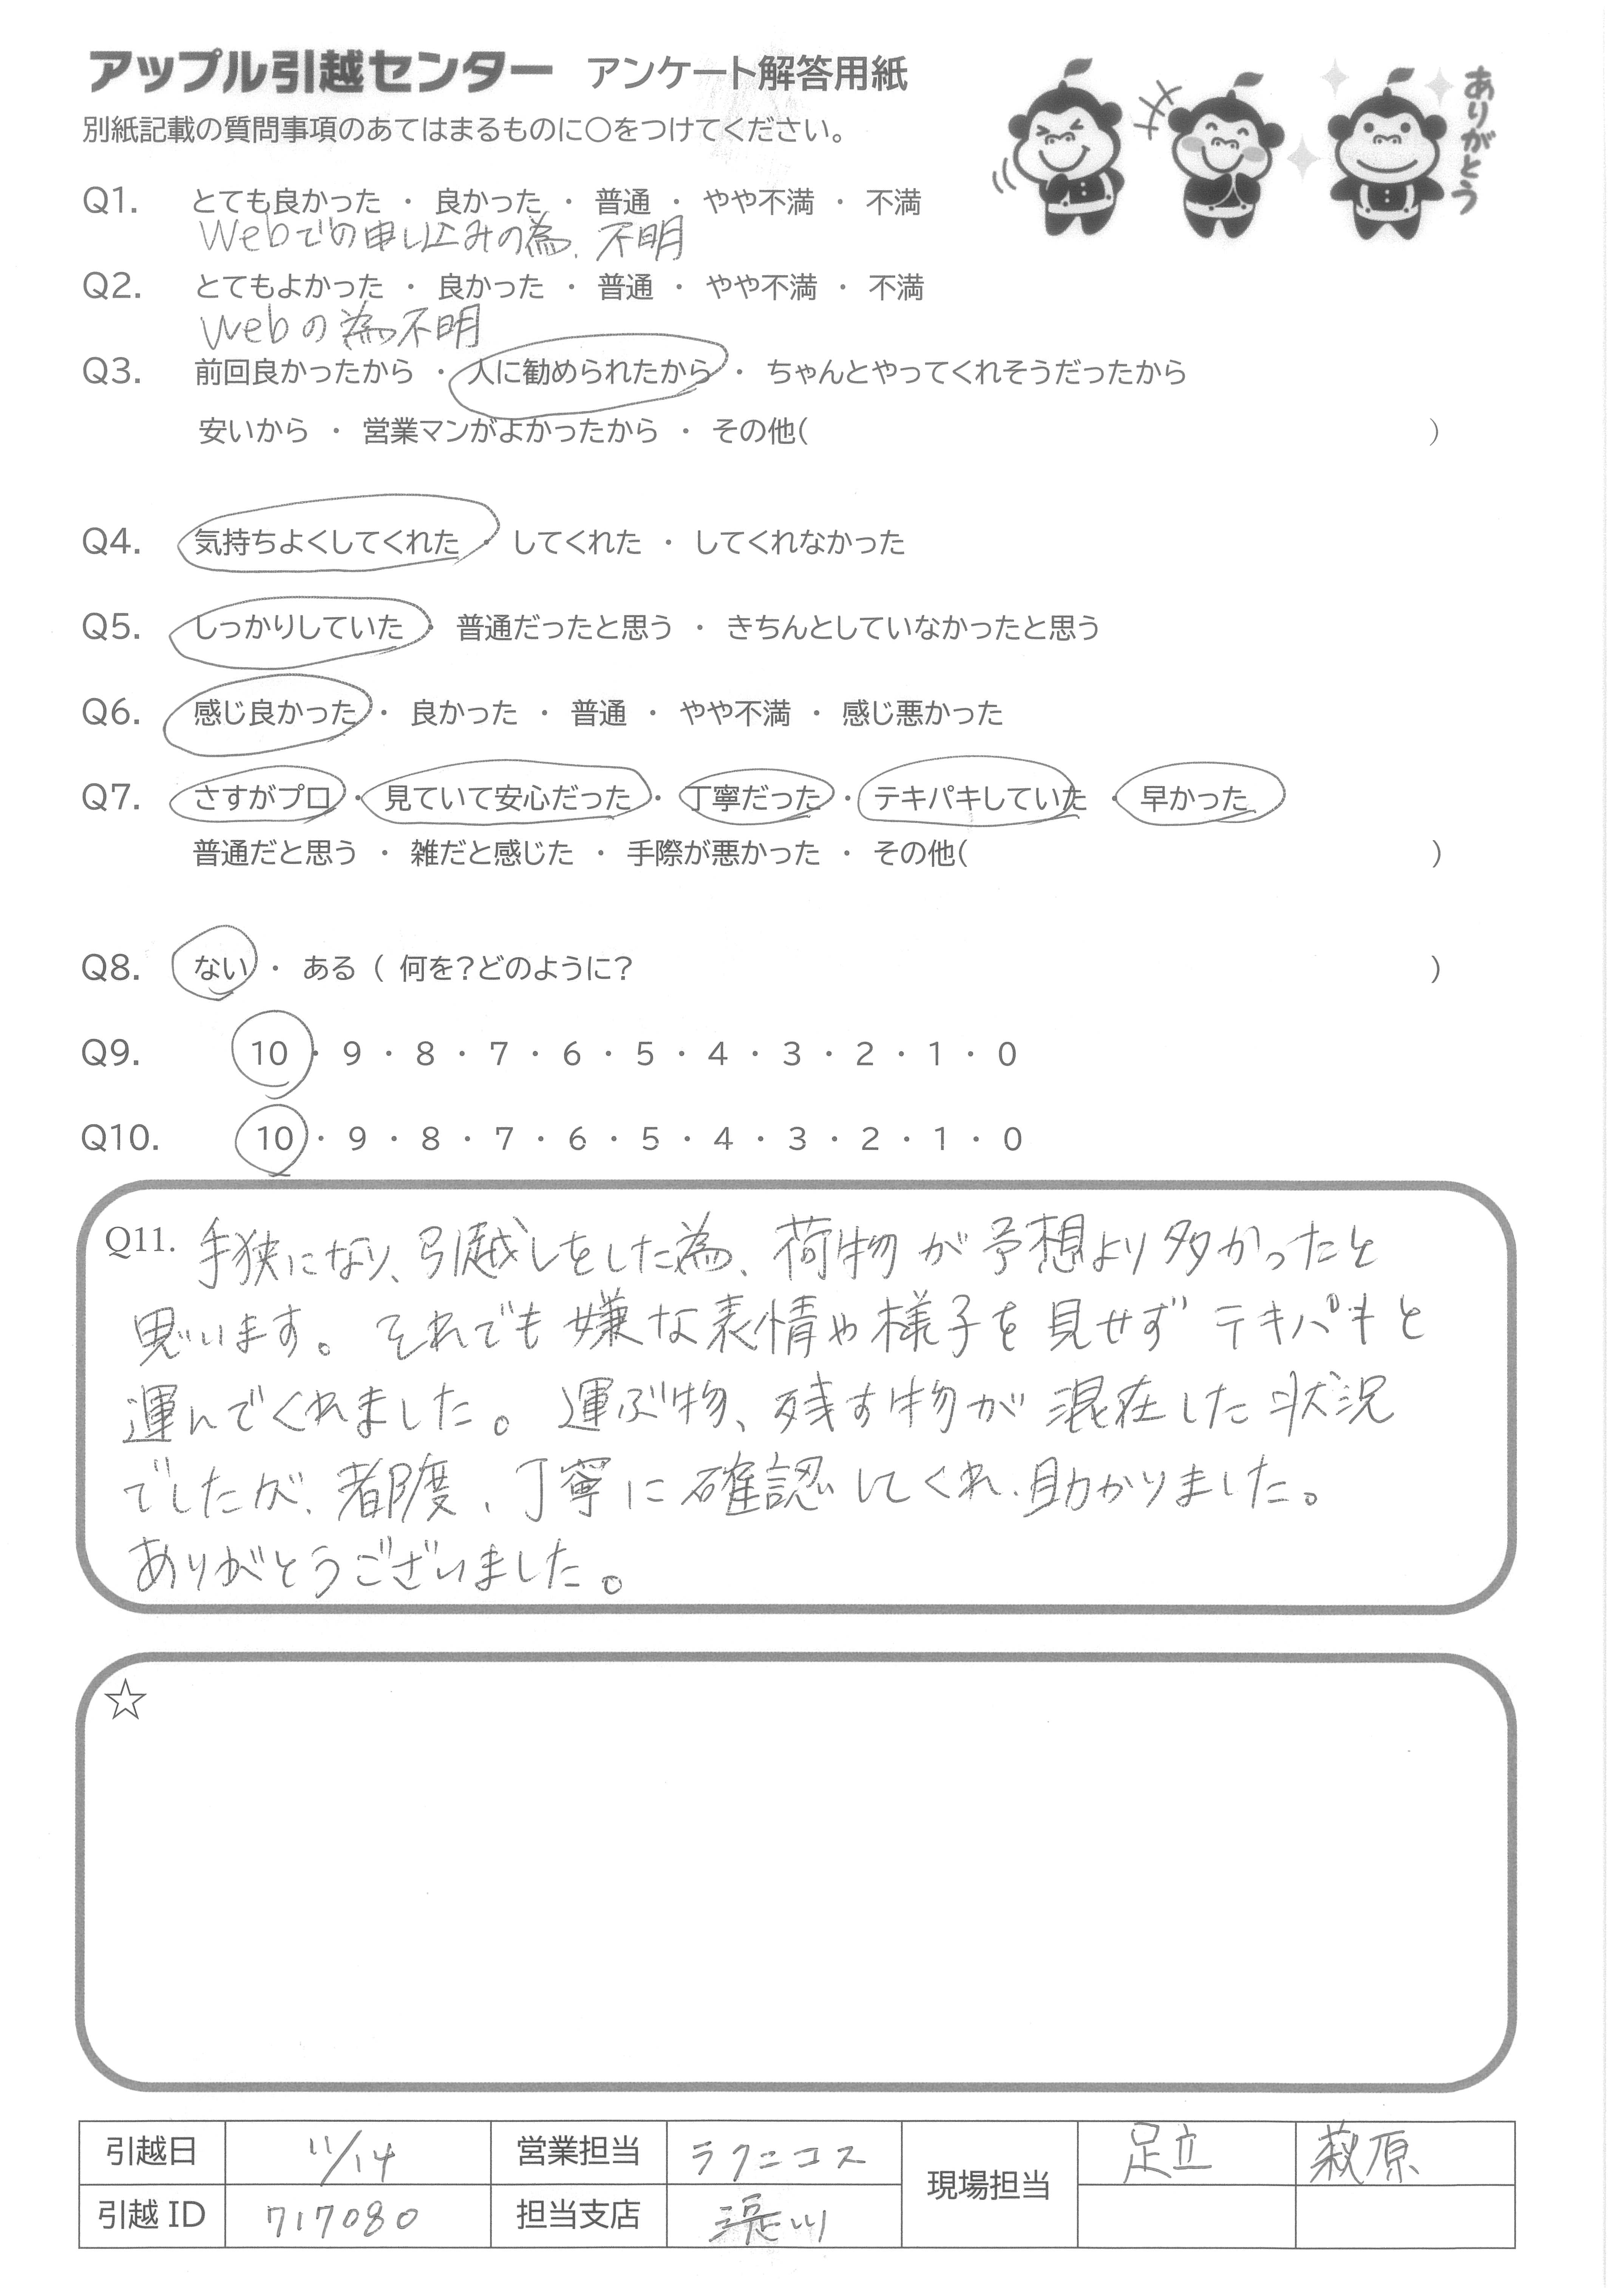 アップル引越センター アンケート解答用紙
ありがとう
別紙記載の質問事項のあてはまるものに〇をつけてください。
Q1. とても良かった ・ 良かった ・ 普通 ・ やや不満 ・ 不満
Webでの申し込みの為、不明
Q2. とてもよかった ・ 良かった ・ 普通 ・ やや不満 ・ 不満
Webの為不明
Q3. 前回良かったから ・ 人に勧められたから ・ ちゃんとやってくれそうだったから
安いから ・ 営業マンがよかったから ・ その他( )
Q4. 気持ちよくしてくれた ・ してくれた ・ してくれなかった
Q5. しっかりしていた ・ 普通だったと思う ・ きちんとしていなかったと思う
Q6. 感じ良かった ・ 良かった ・ 普通 ・ やや不満 ・ 感じ悪かった
Q7. さすがプロ ・ 見ていて安心だった ・ 丁寧だった ・ テキパキしていた ・ 早かった
普通だと思う ・ 雑だと感じた ・ 手際が悪かった ・ その他( )
Q8. ない ・ ある ( 何を?どのように? )
Q9. 10 ・ 9 ・ 8 ・ 7 ・ 6 ・ 5 ・ 4 ・ 3 ・ 2 ・ 1 ・ 0
Q10. 10 ・ 9 ・ 8 ・ 7 ・ 6 ・ 5 ・ 4 ・ 3 ・ 2 ・ 1 ・ 0
Q11. 手狭になり、引越しをした為、荷物が予想より多かったと
思います。それでも嫌な表情や様子を見せずテキパキと
運んでくれました。運ぶ物、残す物が混在した状況
でしたが、都度、丁寧に確認してくれ、助かりました。
ありがとうございました。
☆
引越日 11/14 営業担当 ラクニコス 現場担当 足立 萩原
引越ID 717080 担当支店